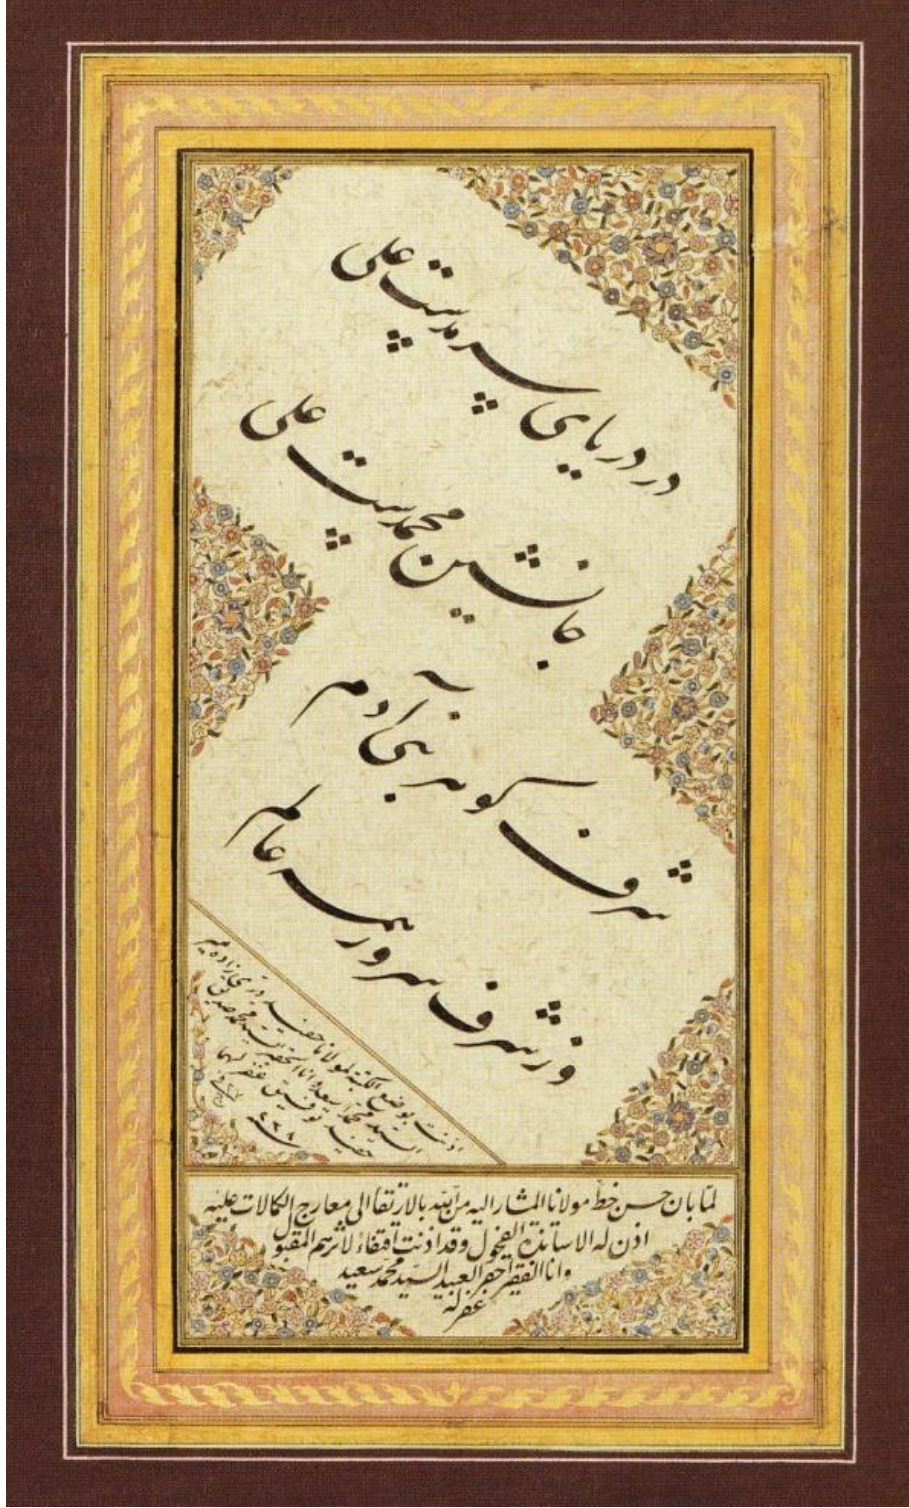 در دریای سرمدیست علی
جانشین محمدیست علی
شرف کوهر بنی آدم
وز شرف سرور همه عالم
اذنت بوضع الكتبة لمولانا حفيد درى زاده
السيد محمد سعيد وانا الحقير السيد محمد صديق
حفيد توفيق غفر لهما
لما بان حسن خط مولانا المشار اليه بالارتقا الى معارج الكمالات عليه
اذن له الاساتذة الفحول وقد اذنت اقتفاء لاثرهم المقبول
وانا الفقير احقر العبيد السيد محمد سعيد
غفر له